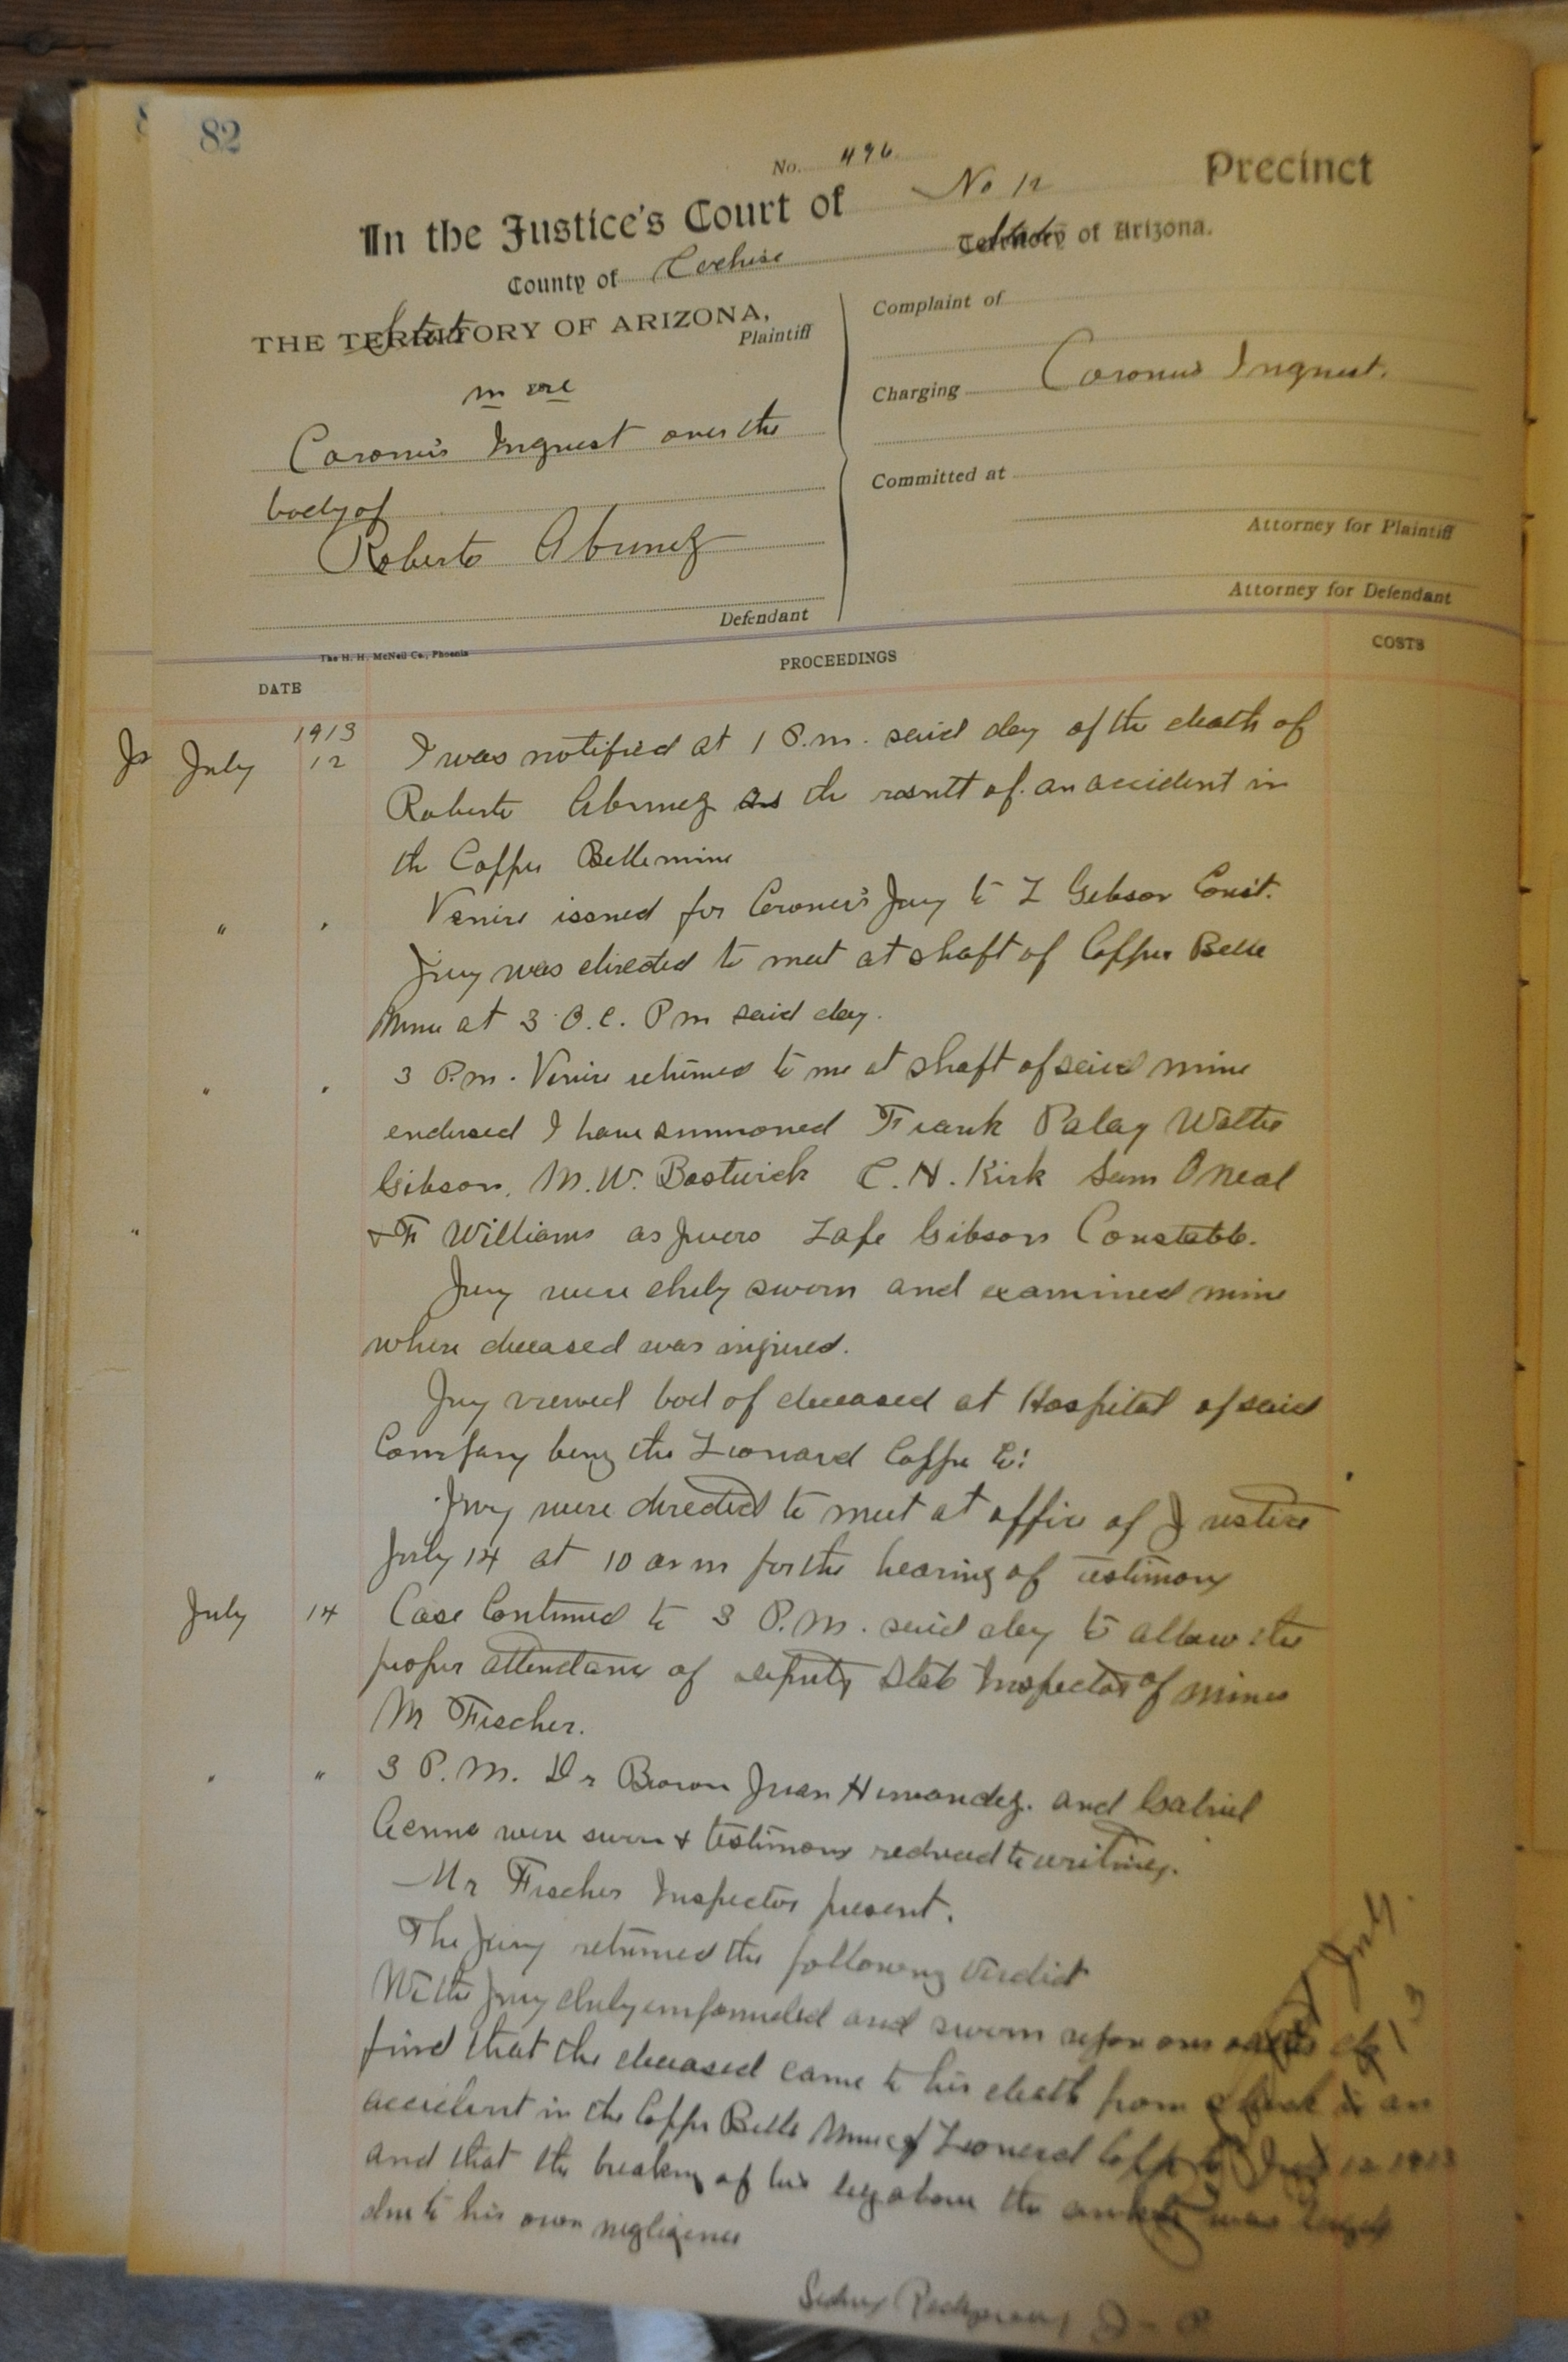 82
No. 496.
In the Justice's Court of No 12 Precinct
County of Cochise Territory of Arizona.
State
THE TERRITORY OF ARIZONA,
Plaintiff
in re
Coroner's Inquest over the
body of
Roberto Abunez
Defendant
Complaint of
Charging Coroners Inquest.
Committed at
Attorney for Plaintiff
Attorney for Defendant
The H. H. McNeil Co., Phoenix
DATE PROCEEDINGS COSTS
1913
July 12 I was notified at 1 P.m. said day of the death of
Roberto Abunez as the result of an accident in
the Copper Belle mine
" " Venire issued for Coroner's Jury to L Gibson Const.
Jury was directed to meet at shaft of Copper Belle
Mine at 3 O.C. Pm said day.
" " 3 P.m. Venire returned to me at shaft of said mine
endorsed I have summoned Frank Palay Walter
Gibson, M.W. Bostwick C.N. Kirk Sam Oneal
+ F Williams as Jurors Lafe Gibson Constable.
Jury were duly sworn and examined mine
where deceased was injured.
Jury viewed bod of deceased at Hospital of said
Company being the Leonard Copper Co.
Jury were directed to meet at office of Justice
July 14 at 10 a m for the hearing of testimony
July 14 Case Continued to 3 P.M. said day to allow the
proper attendance of deputy State Inspector of mines
M Fischer.
" " 3 P.M. Dr Brown Juan Hernandez. and Gabriel
were sworn + testimony reduced to writing.
Mr Fischer Inspector present.
The Jury returned the following Verdict
We the Jury duly empanneled and sworn upon our oaths do
find that the deceased came to his death from shock in an
accident in the Copper Belle Mine of Leonard Copper Co July 12 1913
and that the breaking of his leg above the ankle was largely
due to his own negligence
J - P